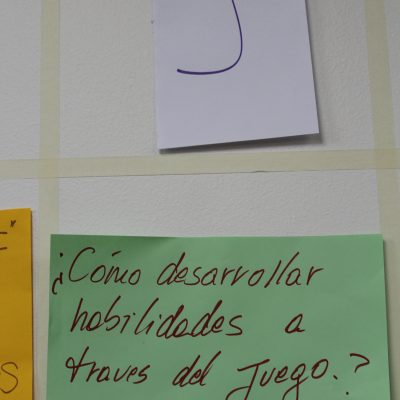 J
¿Cómo desarrollar
habilidades a
traves del Juego.?